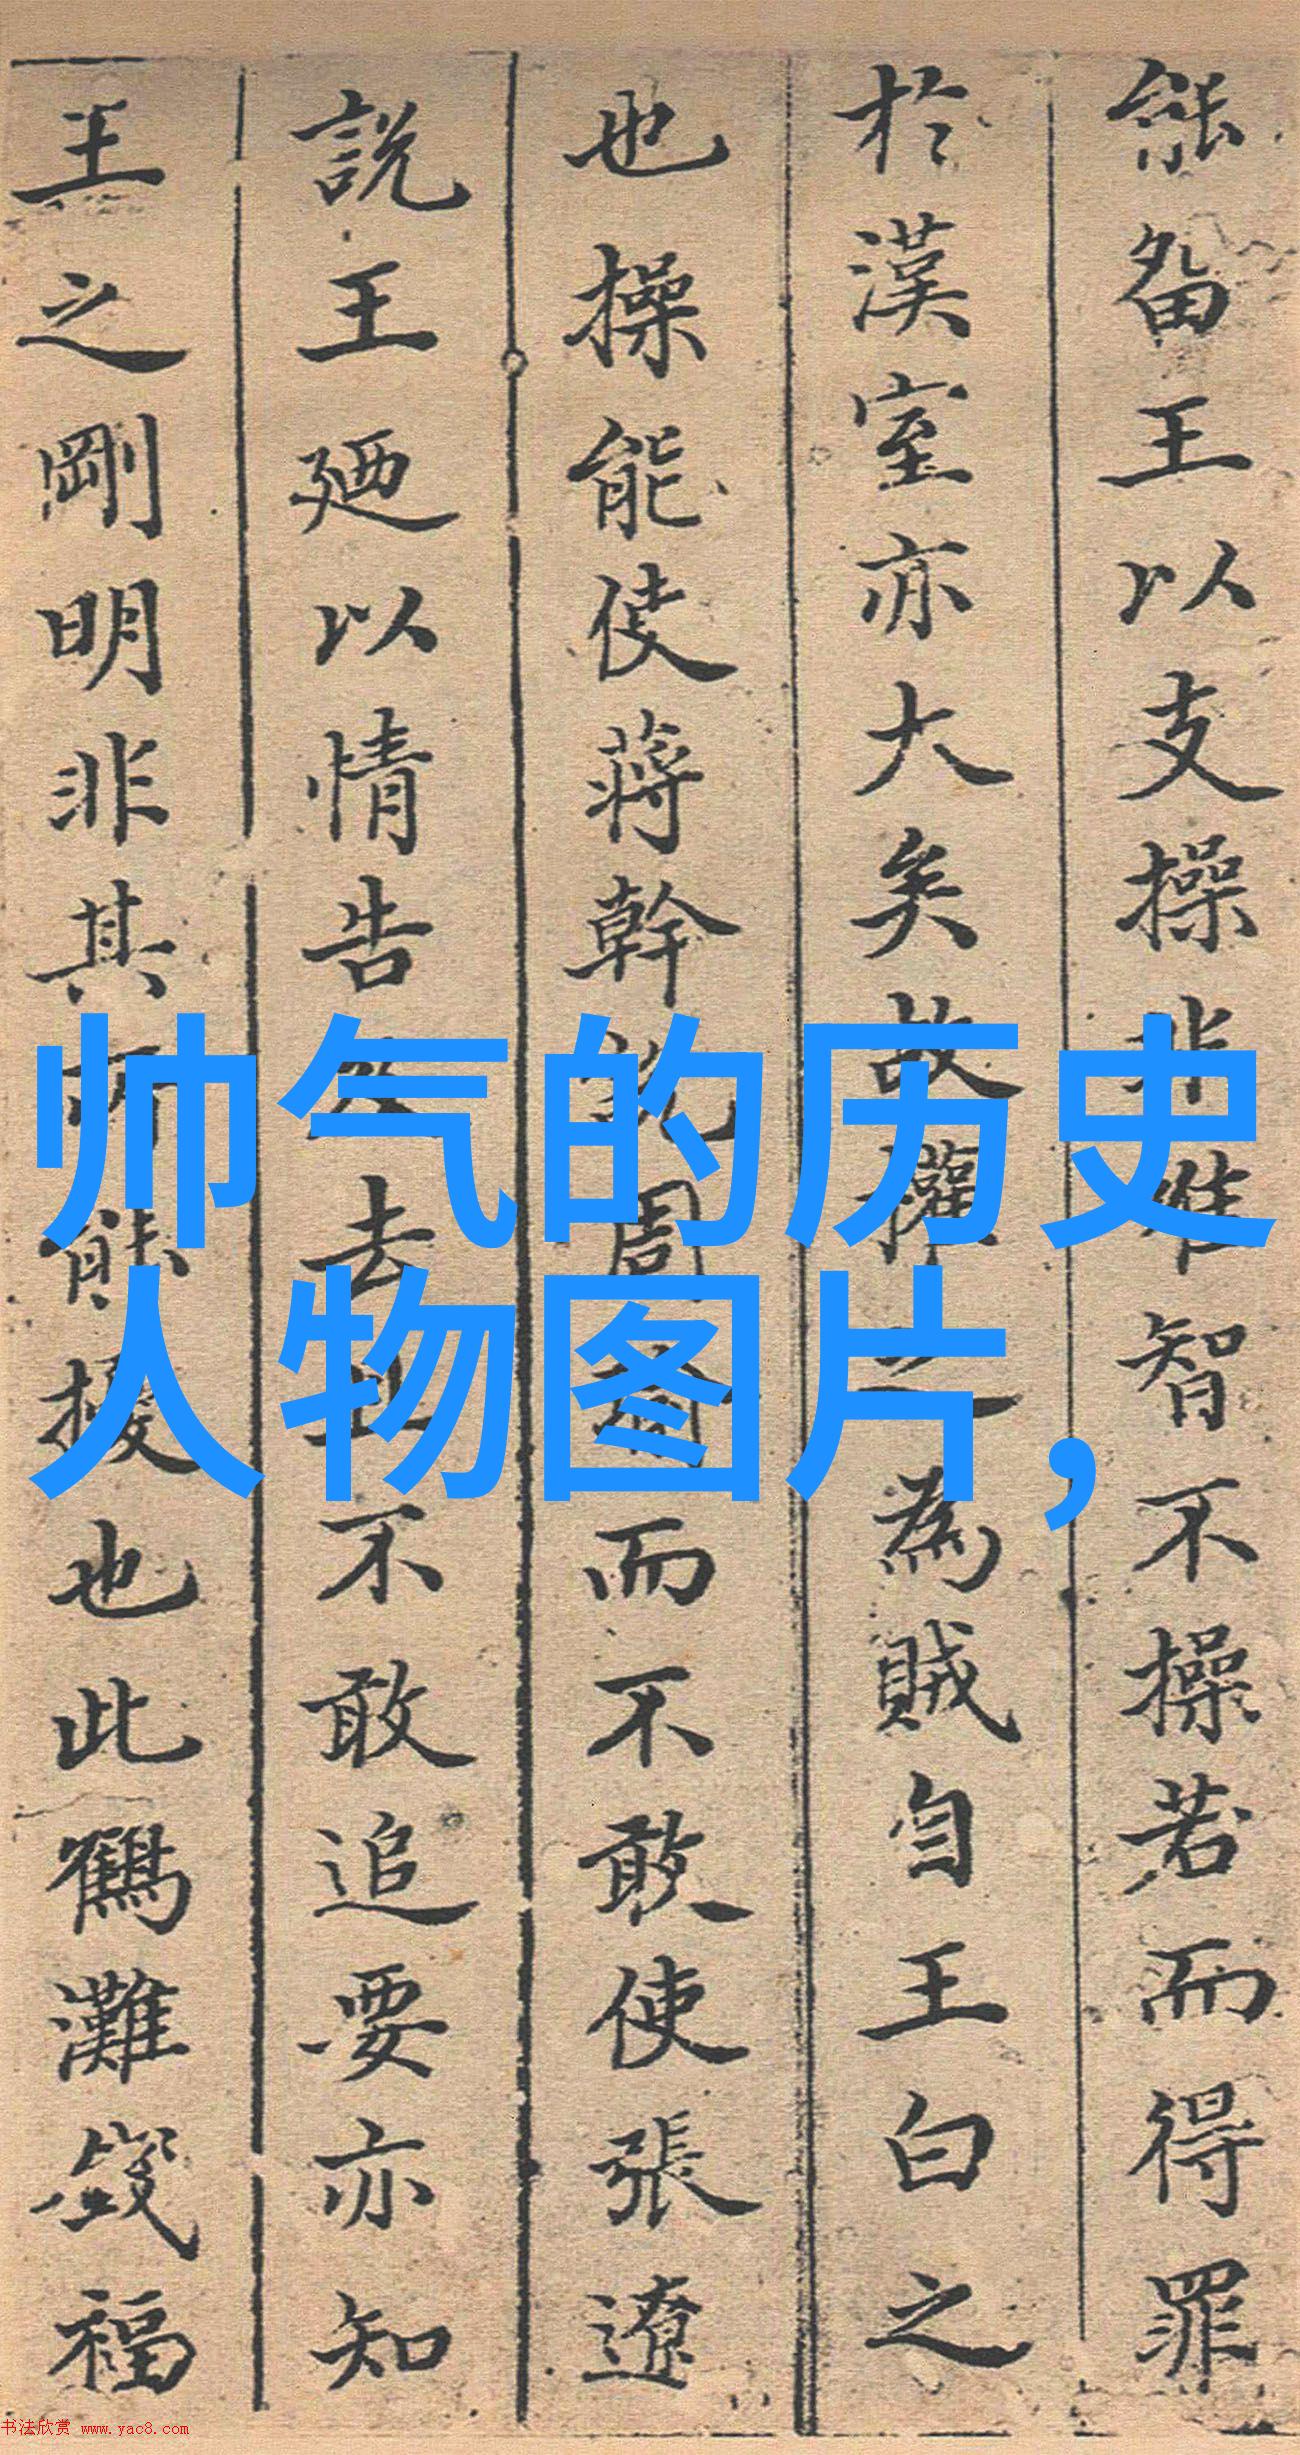 能留王以支操非惟智不操若而得罪
於漢室亦大矣故權之為賊自王白之
也操能使蔣幹說周瑜而不敢使張遼
說王廼以情告去且不敢追要亦知
王之剛明非其所能也此鶴灘錢福
帅气的历史
人物图片，
书法欣赏 www.yac8.com